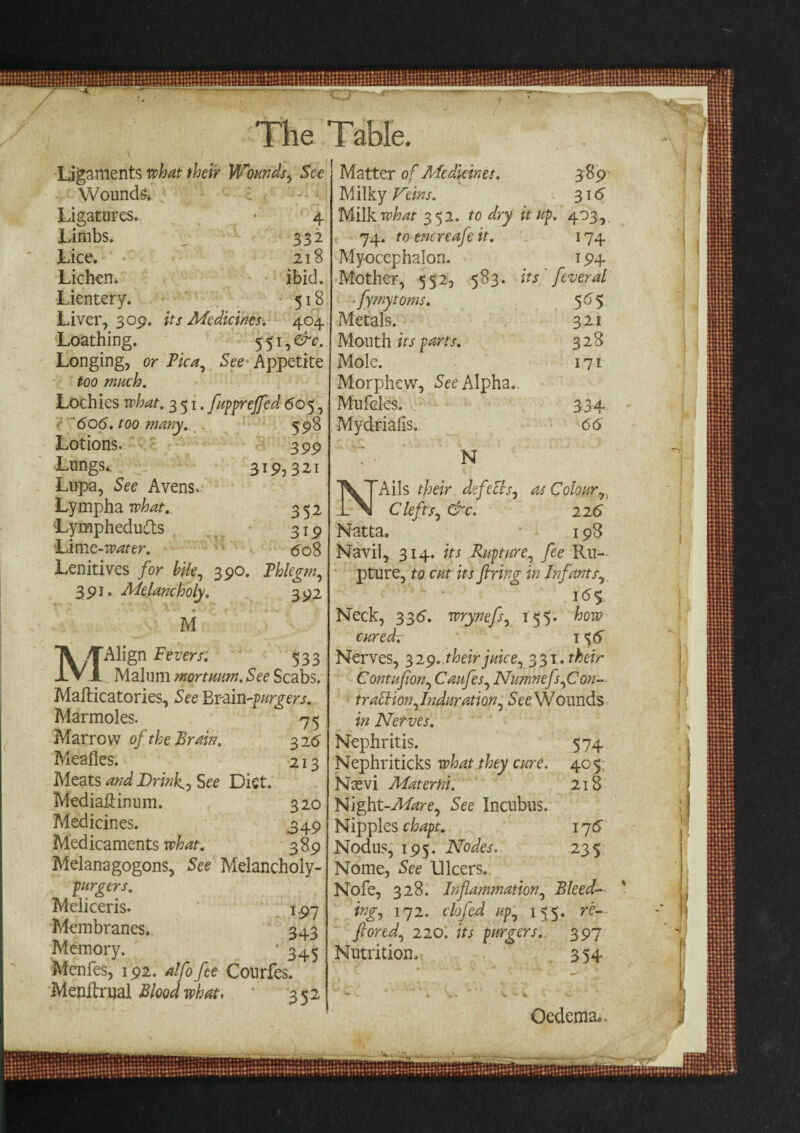 The Table.
Ligaments what their Wounds, See
Wounds.
Ligatures. 4
Limbs. 332
Lice. 218
Lichen. ibid.
Lientery. 518
Liver, 309. its Medicines. 404
Loathing. 551, &c.
Longing, or Pica, See Appetite
too much.
Lochies what. 351. ſuppreſſed 605,
606. too many. 598
Lotions. 399
Lungs. 319, 321
Lupa, See Avens.
Lympha what. 352
Lympheducts 319
Lime-water. 608
Lenitives for bile, 390. Phlegm,
391. Melancholy. 392
M
MAlign Fevers. 533
Malum mortuum. See Scabs.
Maſticatories, See Brain-purgers.
Marmoles. 75
Marrow of the Brain. 326
Meaſles. 213
Meats and Drink, See Diet.
Mediaſtinum. 320
Medicines. 349
Medicaments what. 389
Melanagogons, See Melancholy-
purgers.
Meliceris. 197
Membranes. 343
Memory. 345
Menſes, 192. alſo ſee Courſes.
Menſtrual Blood what. 352
Matter of Medicines. 389
Milky Veins. 316
Milk what 352. to dry it up. 403,
74. to encreaſe it. 174
Myocephalon. 194
Mother, 552, 583. its ſeveral
ſymytoms. 565
Metals. 321
Mouth its parts. 328
Mole. 171
Morphew, See Alpha.
Muſcles. 334
Mydriaſis. 66
N
NAils their defects, as Colour,
Clefts, &c. 226
Natta. 198
Navil, 314. its Rupture, ſee Ru-
pture, to cut its ſtring in Infants,
165.
Neck, 336. wryneſs, 155. how
cured. 156
Nerves, 329. their juice, 331. their
Contuſion, Cauſes, Numneſs, Con-
traction, Induration, See Wounds
in Nerves.
Nephritis. 574
Nephriticks what they cure. 405
Nævi Materni. 218
Night-Mare, See Incubus.
Nipples chapt. 176
Nodus, 195. Nodes. 235
Nome, See Ulcers.
Noſe, 328. Inflammation, Bleed-
ing, 172. cloſed up, 155. re-
ſtored, 220. its purgers. 397
Nutrition. 354
Oedema.